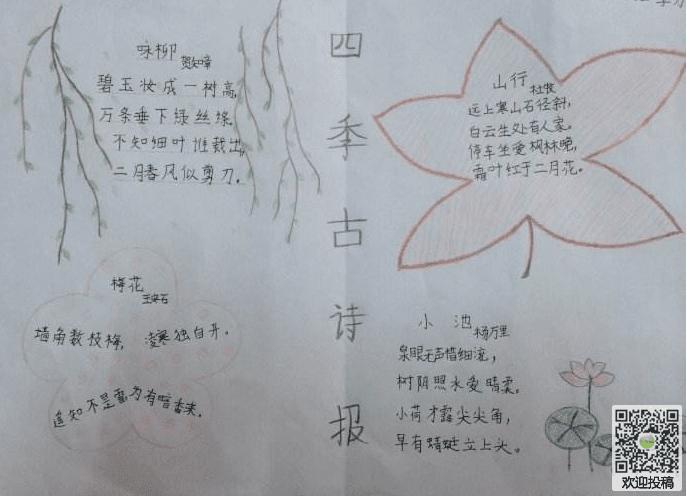 四季古诗报
咏柳
贺知章
碧玉妆成一树高,
万条垂下绿丝绦,
不知细叶谁裁出,
二月春风似剪刀。
山行
杜牧
远上寒山石径斜,
白云生处有人家。
停车坐爱枫林晚,
霜叶红于二月花。
梅花
王安石
墙角数枝梅, 凌寒独自开。
遥知不是雪为有暗香来。
小池
杨万里
泉眼无声惜细流,
树阴照水爱晴柔。
小荷才露尖尖角,
早有蜻蜓立上头。
欢迎投稿